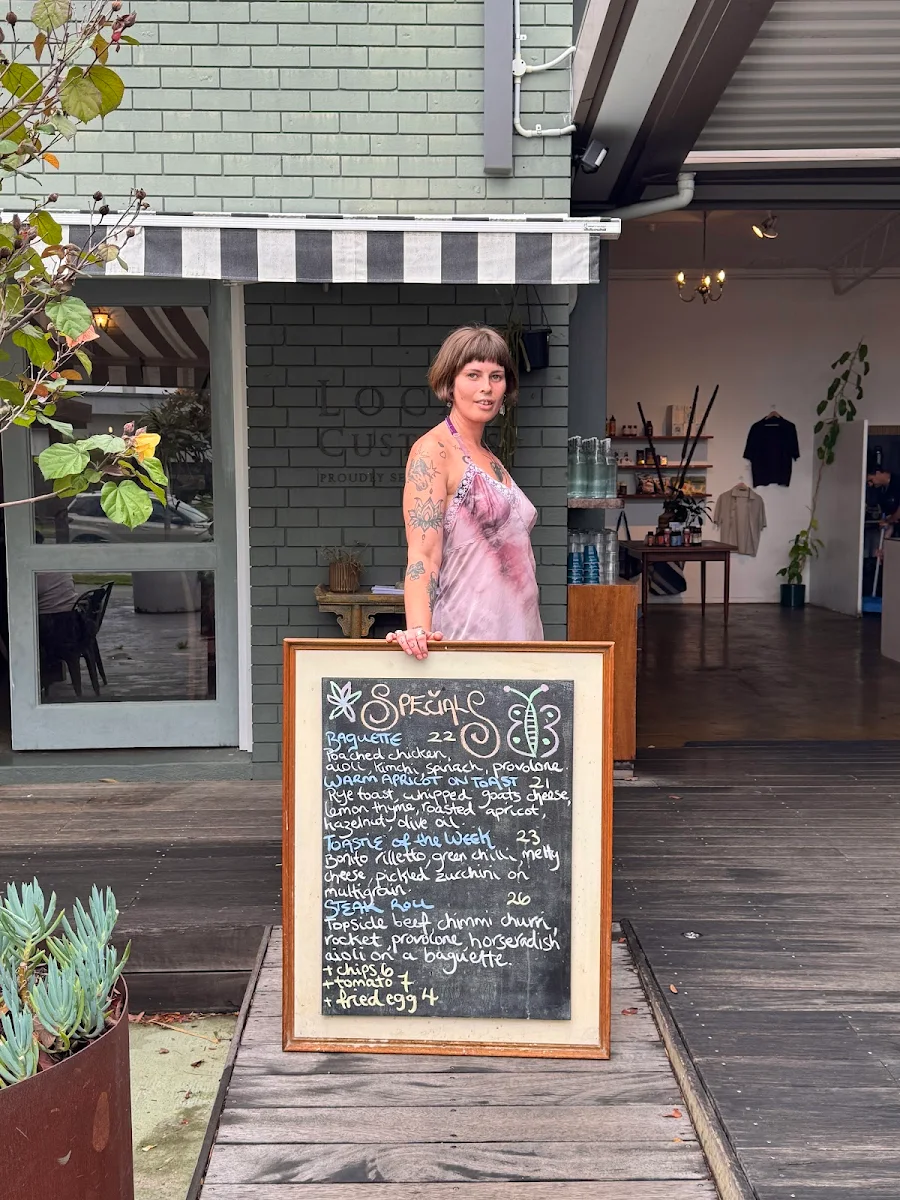 LOC
CUST
PROUDLY SE
SPECIALS
BAGUETTE 22
Poached chicken
aioli, kimchi, spinach, provolone
WARM APRICOT ON TOAST 21
Rye toast, whipped goats cheese,
lemon thyme, roasted apricot,
hazelnut, olive oil.
TOASTIE of the WEEK 23
Bonito rilletto, green chilli, melty
cheese, pickled zucchini on
multigrain.
STEAK ROLL 26
Topside beef chimmi churri,
rocket provolone horseradish
aioli on a baguette.
+ chips 6
+ tomato 7
+ fried egg 4